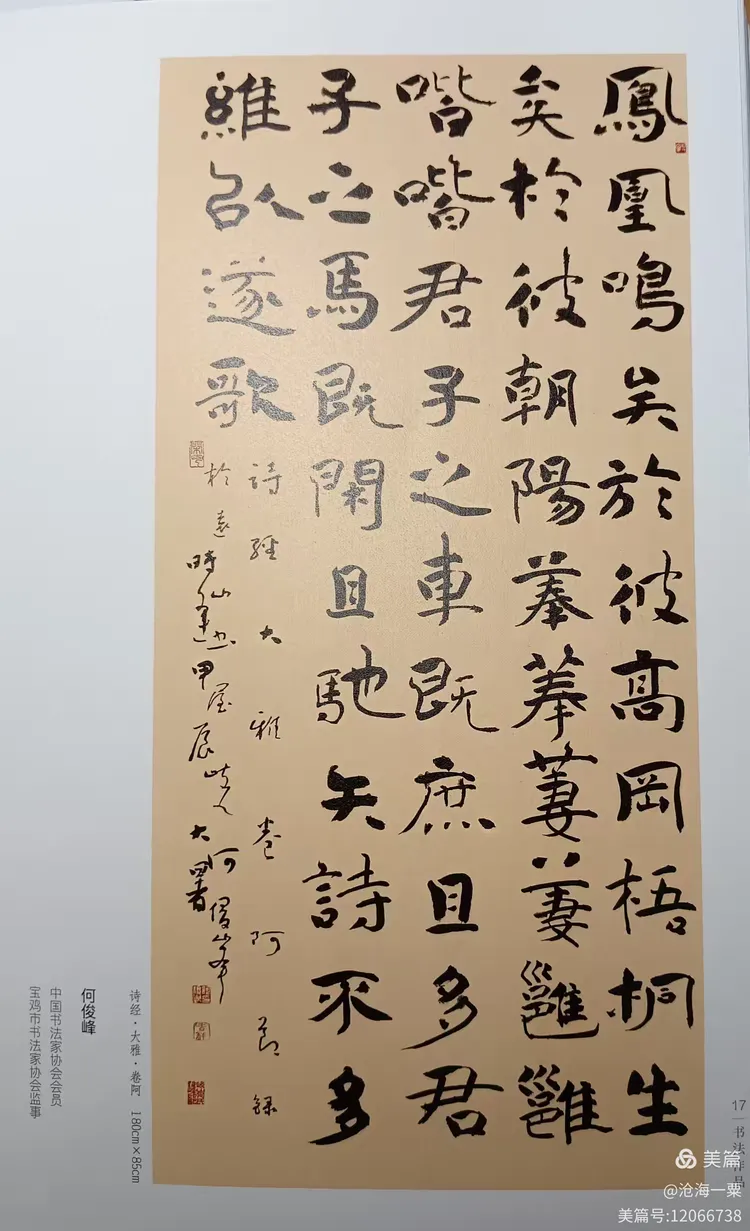 鳳凰鳴矣於彼高岡梧桐生
矣於彼朝陽菶菶萋萋雝雝
喈喈君子之車既庶且多君
子之馬既閑且馳矢詩不多
維以遂歌
詩經大雅卷阿節録
於遠山書屋岐人何俊峰
時逢甲辰大暑
诗经·大雅·卷阿 180cm×85cm
何俊峰
中国书法家协会会员
宝鸡市书法家协会监事
17 书法作品
美篇
@沧海一粟
美篇号:12066738